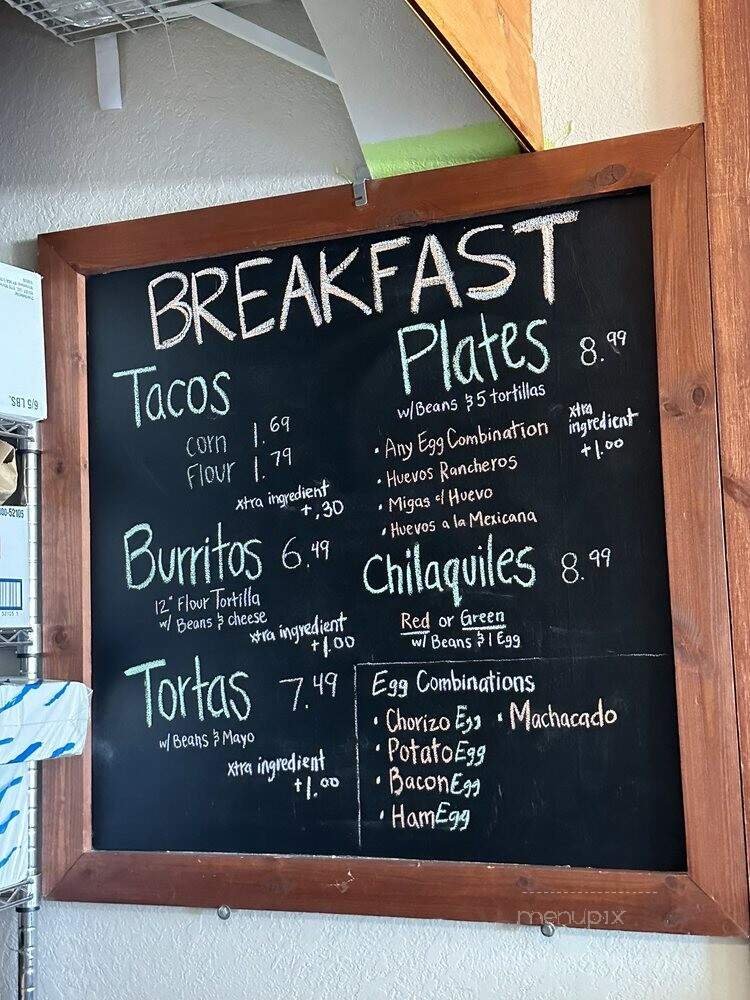 BREAKFAST
Tacos
corn 1.69
Flour 1.79
xtra ingredient
+.30
Burritos 6.49
12" Flour Tortilla
w/ Beans & cheese
xtra ingredient
+1.00
Tortas 7.49
w/ Beans & Mayo
xtra ingredient
+1.00
Plates 8.99
w/Beans & 5 tortillas
xtra
ingredient
+1.00
• Any Egg Combination
• Huevos Rancheros
• Migas c/ Huevo
• Huevos a la Mexicana
Chilaquiles 8.99
Red or Green
w/ Beans & 1 Egg
Egg Combinations
• Chorizo Egg • Machacado
• Potato Egg
• Bacon Egg
• Ham Egg
6/5 LBS.
00-52105
menupix